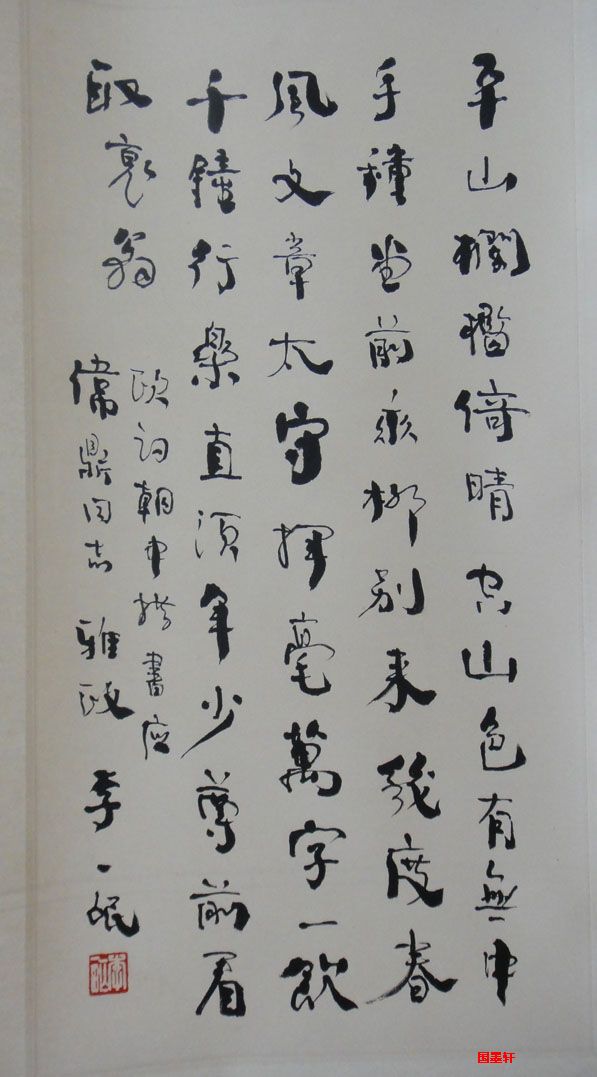 平山欄檻倚晴空山色有無中
手種堂前垂柳別来幾度春
風文章太守揮毫萬字一飲
千鐘行樂直須年少尊前看
取衰翁
歐詞朝中措書應
偉鼎同志雅政 李一氓
国墨轩